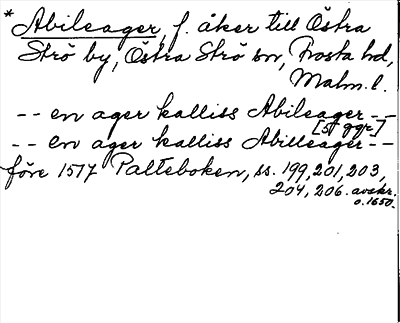 * Abileager, f. åker till Östra
Strö by, Östra Strö sn, Frosta hd,
Malm. l.
-- en ager kalliss Abileager --
[5 ggr]
-- en ager kalliss Abilleager --
före 1517 Palteboken, ss. 199, 201, 203,
204, 206. avskr.
o. 1650.